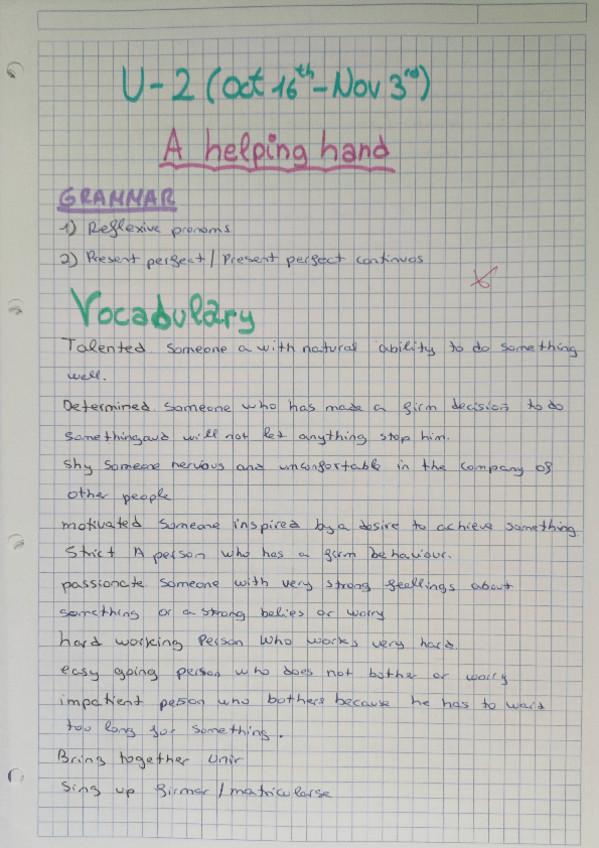 U-2 (Oct 16th - Nov 3rd)
A helping hand
GRAMMAR
1) Reflexive pronoms
2) Present perfect / Present perfect continuos
Vocabulary
Talented. Someone a with natural ability to do something
well.
Determined. Someone who has made a firm decision to do
something and will not let anything stop him.
Shy Someone nervious and unconfortable in the company of
other people
motivated Someone inspired by a desire to achieve something.
Strict A person who has a firm behaviour.
passionate Someone with very strong feellings about
something or a strong belies or worry
hard working Person Who works very hard.
easy going person who does not bother or worry
impatient person who bothers because he has to wait
too long for something.
Bring together Unir
Sing up firmar / matricularse